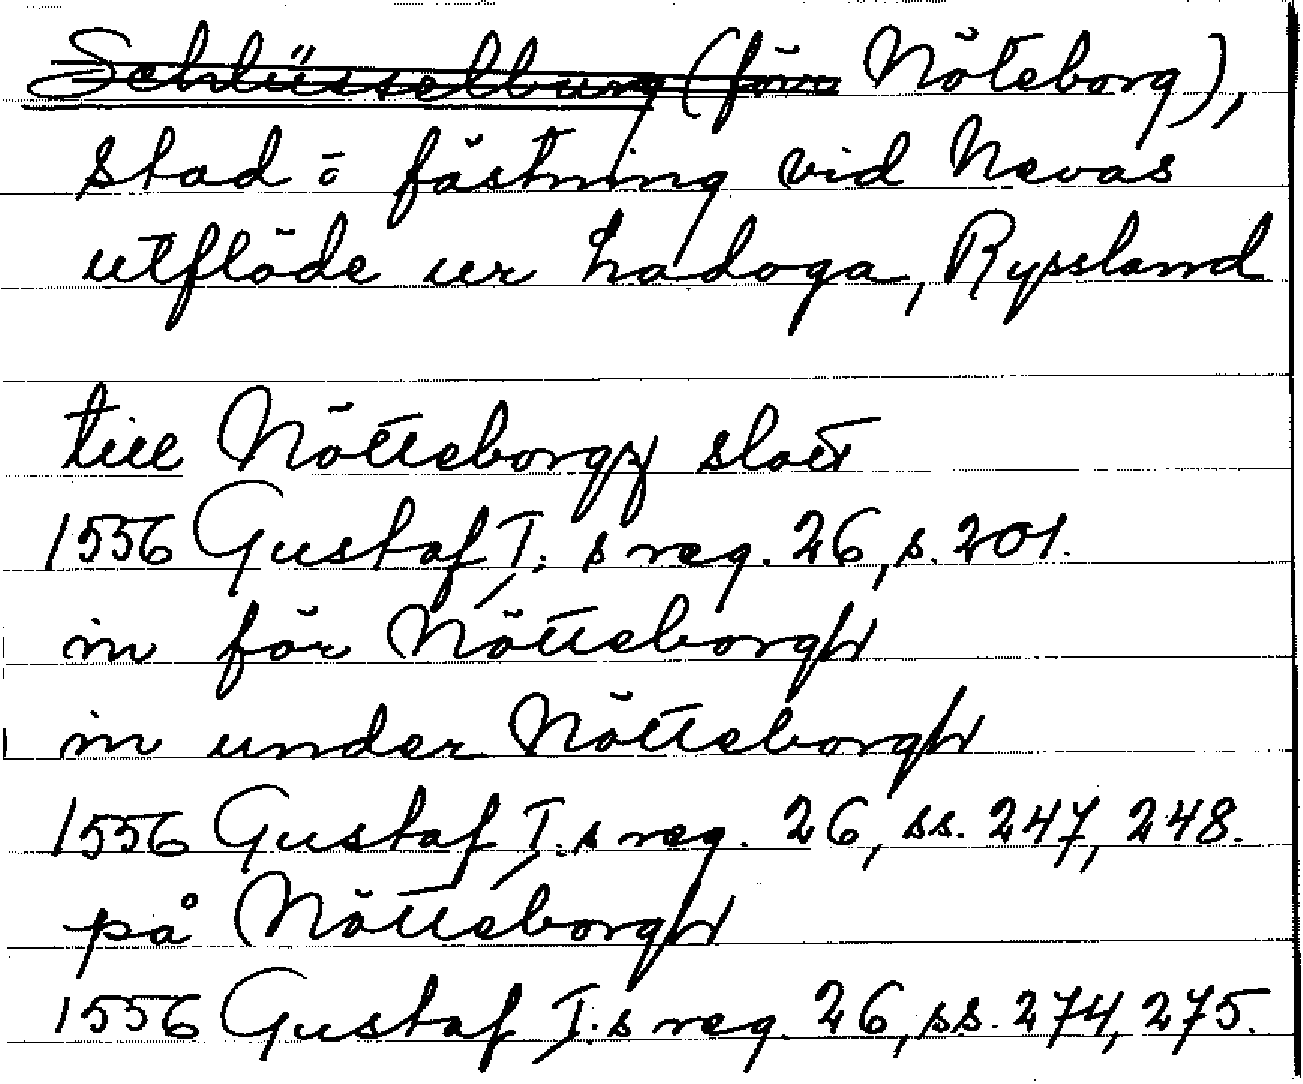 Schlüsselburg (förr Nöteborg),
stad o fästning vid Nevas
utflöde ur Ladoga, Ryssland
till Nötteborgh slott
1556 Gustaf I:s reg. 26, s. 201.
in för Nötteborgh
in under Nötteborgh
1556 Gustaf I:s reg. 26, ss. 247, 248.
på Nötteborgh
1556 Gustaf I:s reg. 26, ss. 274, 275.